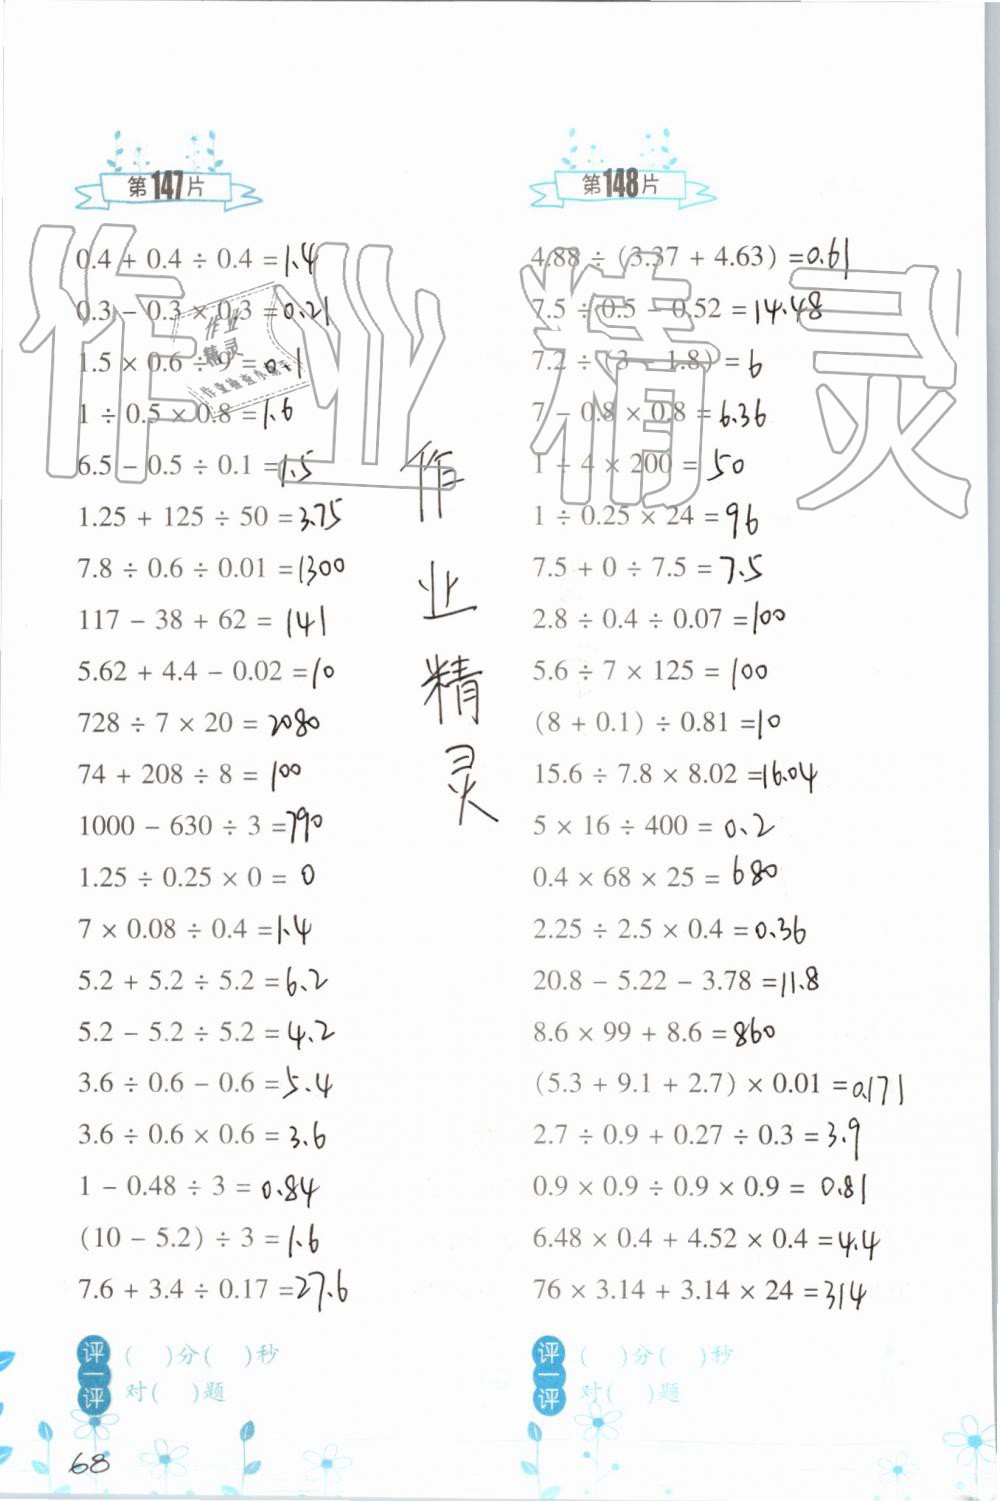 第147片
0.4 + 0.4 ÷ 0.4 = 1.4
0.3 - 0.3 × 0.3 = 0.21
1.5 × 0.6 ÷ 9 = 0.1
1 ÷ 0.5 × 0.8 = 1.6
6.5 - 0.5 ÷ 0.1 = 1.5
1.25 + 125 ÷ 50 = 3.75
7.8 ÷ 0.6 ÷ 0.01 = 1300
117 - 38 + 62 = 141
5.62 + 4.4 - 0.02 = 10
728 ÷ 7 × 20 = 2080
74 + 208 ÷ 8 = 100
1000 - 630 ÷ 3 = 790
1.25 ÷ 0.25 × 0 = 0
7 × 0.08 ÷ 0.4 = 1.4
5.2 + 5.2 ÷ 5.2 = 6.2
5.2 - 5.2 ÷ 5.2 = 4.2
3.6 ÷ 0.6 - 0.6 = 5.4
3.6 ÷ 0.6 × 0.6 = 3.6
1 - 0.48 ÷ 3 = 0.84
(10 - 5.2) ÷ 3 = 1.6
7.6 + 3.4 ÷ 0.17 = 27.6
评一评
( )分( )秒
对( )题
作业精灵
作业精灵
作业
精灵
第148片
4.88 ÷ (3.37 + 4.63) = 0.61
7.5 ÷ 0.5 - 0.52 = 14.48
7.2 ÷ (3 - 1.8) = 6
7 - 0.8 × 0.8 = 6.36
1 ÷ 4 × 200 = 50
1 ÷ 0.25 × 24 = 96
7.5 + 0 ÷ 7.5 = 7.5
2.8 ÷ 0.4 ÷ 0.07 = 100
5.6 ÷ 7 × 125 = 100
(8 + 0.1) ÷ 0.81 = 10
15.6 ÷ 7.8 × 8.02 = 16.04
5 × 16 ÷ 400 = 0.2
0.4 × 68 × 25 = 680
2.25 ÷ 2.5 × 0.4 = 0.36
20.8 - 5.22 - 3.78 = 11.8
8.6 × 99 + 8.6 = 860
(5.3 + 9.1 + 2.7) × 0.01 = 0.171
2.7 ÷ 0.9 + 0.27 ÷ 0.3 = 3.9
0.9 × 0.9 ÷ 0.9 × 0.9 = 0.81
6.48 × 0.4 + 4.52 × 0.4 = 4.4
76 × 3.14 + 3.14 × 24 = 314
评一评
( )分( )秒
对( )题
68